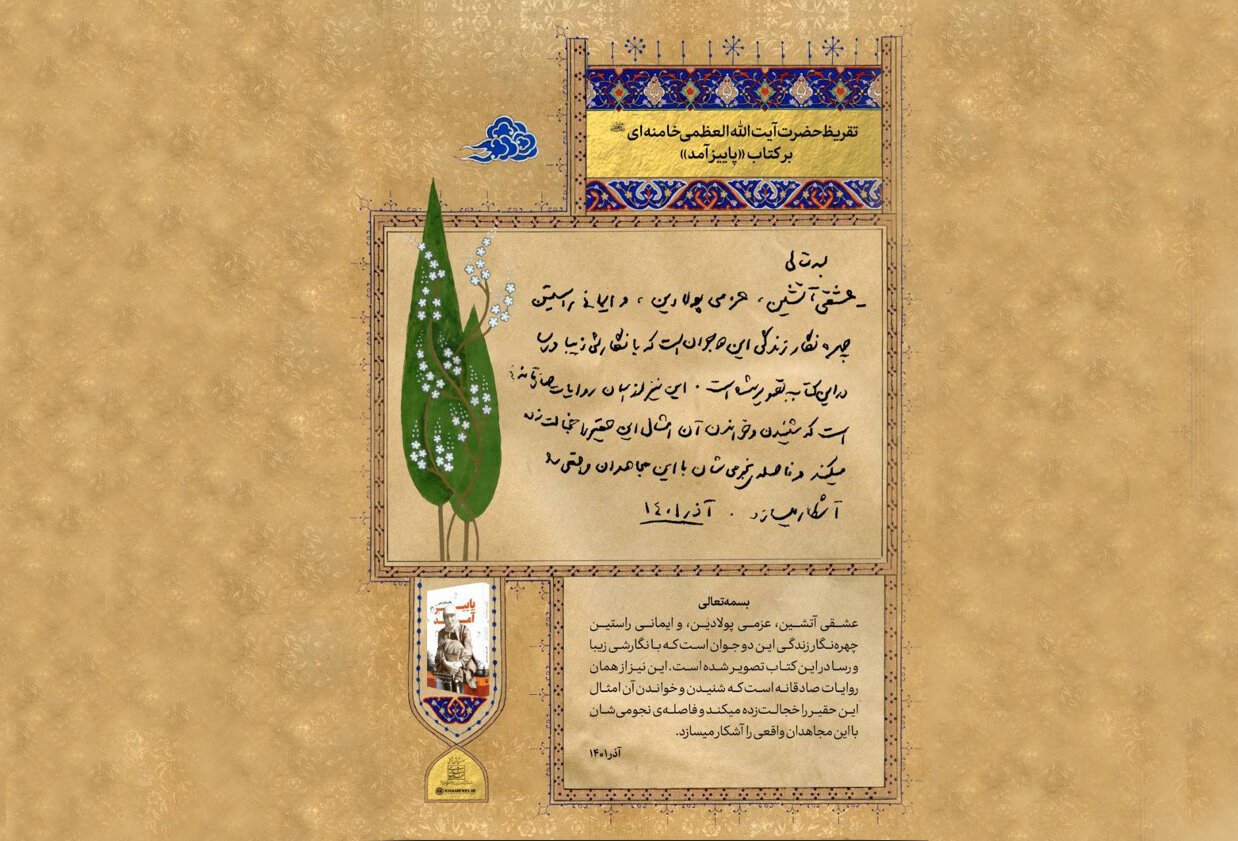 تقریظ حضرت آیت‌الله‌العظمی خامنه‌ای
بر کتاب «پاییز آمد»
بسمه‌تعالی
ـ عشقی آتشین، عزمی پولادین، و ایمانی راستین
چهره‌نگار زندگی این دو جوان است که با نگارشی زیبا و رسا
در این کتاب تصویر شده است. این نیز از همان روایات صادقانه
است که شنیدن و خواندن آن امثال این حقیر را خجالت زده
میکند و فاصله‌ی نجومی‌شان با این مجاهدان واقعی را
آشکار میسازد. آذر ۱۴۰۱
بسمه‌تعالی
عشقی آتشین، عزمی پولادین، و ایمانی راستین
چهره‌نگار زندگی این دو جوان است که با نگارشی زیبا
و رسا در این کتاب تصویر شده است. این نیز از همان
روایات صادقانه است که شنیدن و خواندن آن امثال
این حقیر را خجالت‌زده میکند و فاصله‌ی نجومی‌شان
با این مجاهدان واقعی را آشکار میسازد.
آذر ۱۴۰۱
پاییز
آمد
KHAMENEI.IR